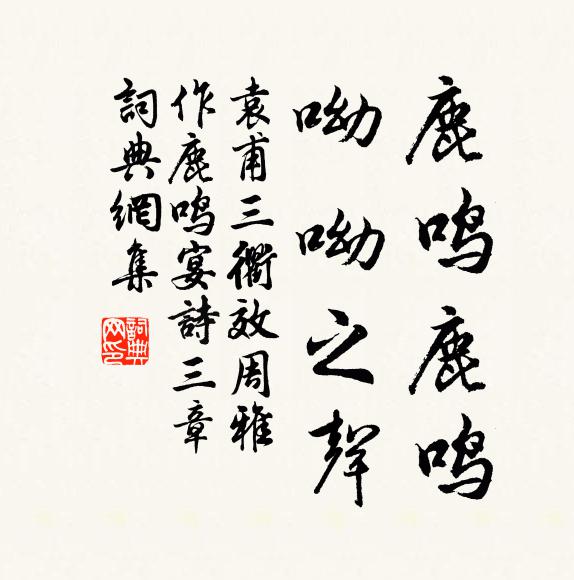 鹿鸣鹿鸣
呦呦之聲
袁甫三衢效周雅
作鹿鸣宴詩三章
詞典網集
詞典网印